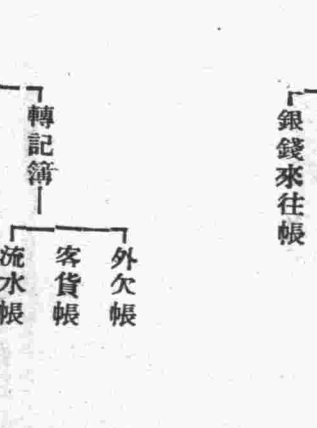 銀錢來往帳
轉記簿
外欠帳
客貨帳
流水帳